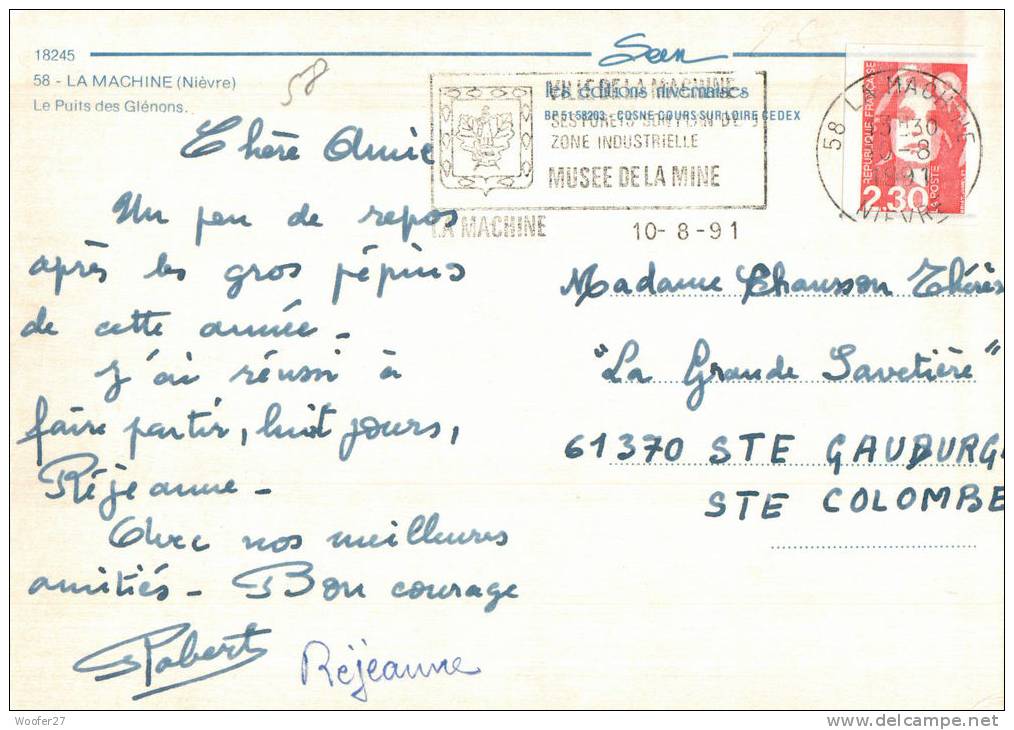 18245
58 - LA MACHINE (Nièvre)
Le Puits des Glénons.
58
les éditions nivernaises
BP 51 58203 - COSNE COURS SUR LOIRE CEDEX
VILLE DE LA MACHINE
SES FORETS SON PLAN D'E
ZONE INDUSTRIELLE
MUSEE DE LA MINE
LA MACHINE 10-8-91
58 LA MACHINE
13H30
10-8
1991
NIEVRE
REPUBLIQUE FRANÇAISE
2,30
POSTE
Chère Amie
Un peu de repos
après les gros pépins
de cette année -
J'ai réussi à
faire partir, huit jours,
Réjeanne -
Avec nos meilleures
amitiés - Bon courage
Robert Réjeanne
Madame Chausson Thérès
"La Grande Savetière"
61370 STE GAUBURG
STE COLOMBE
Woofer27
delcampe.net